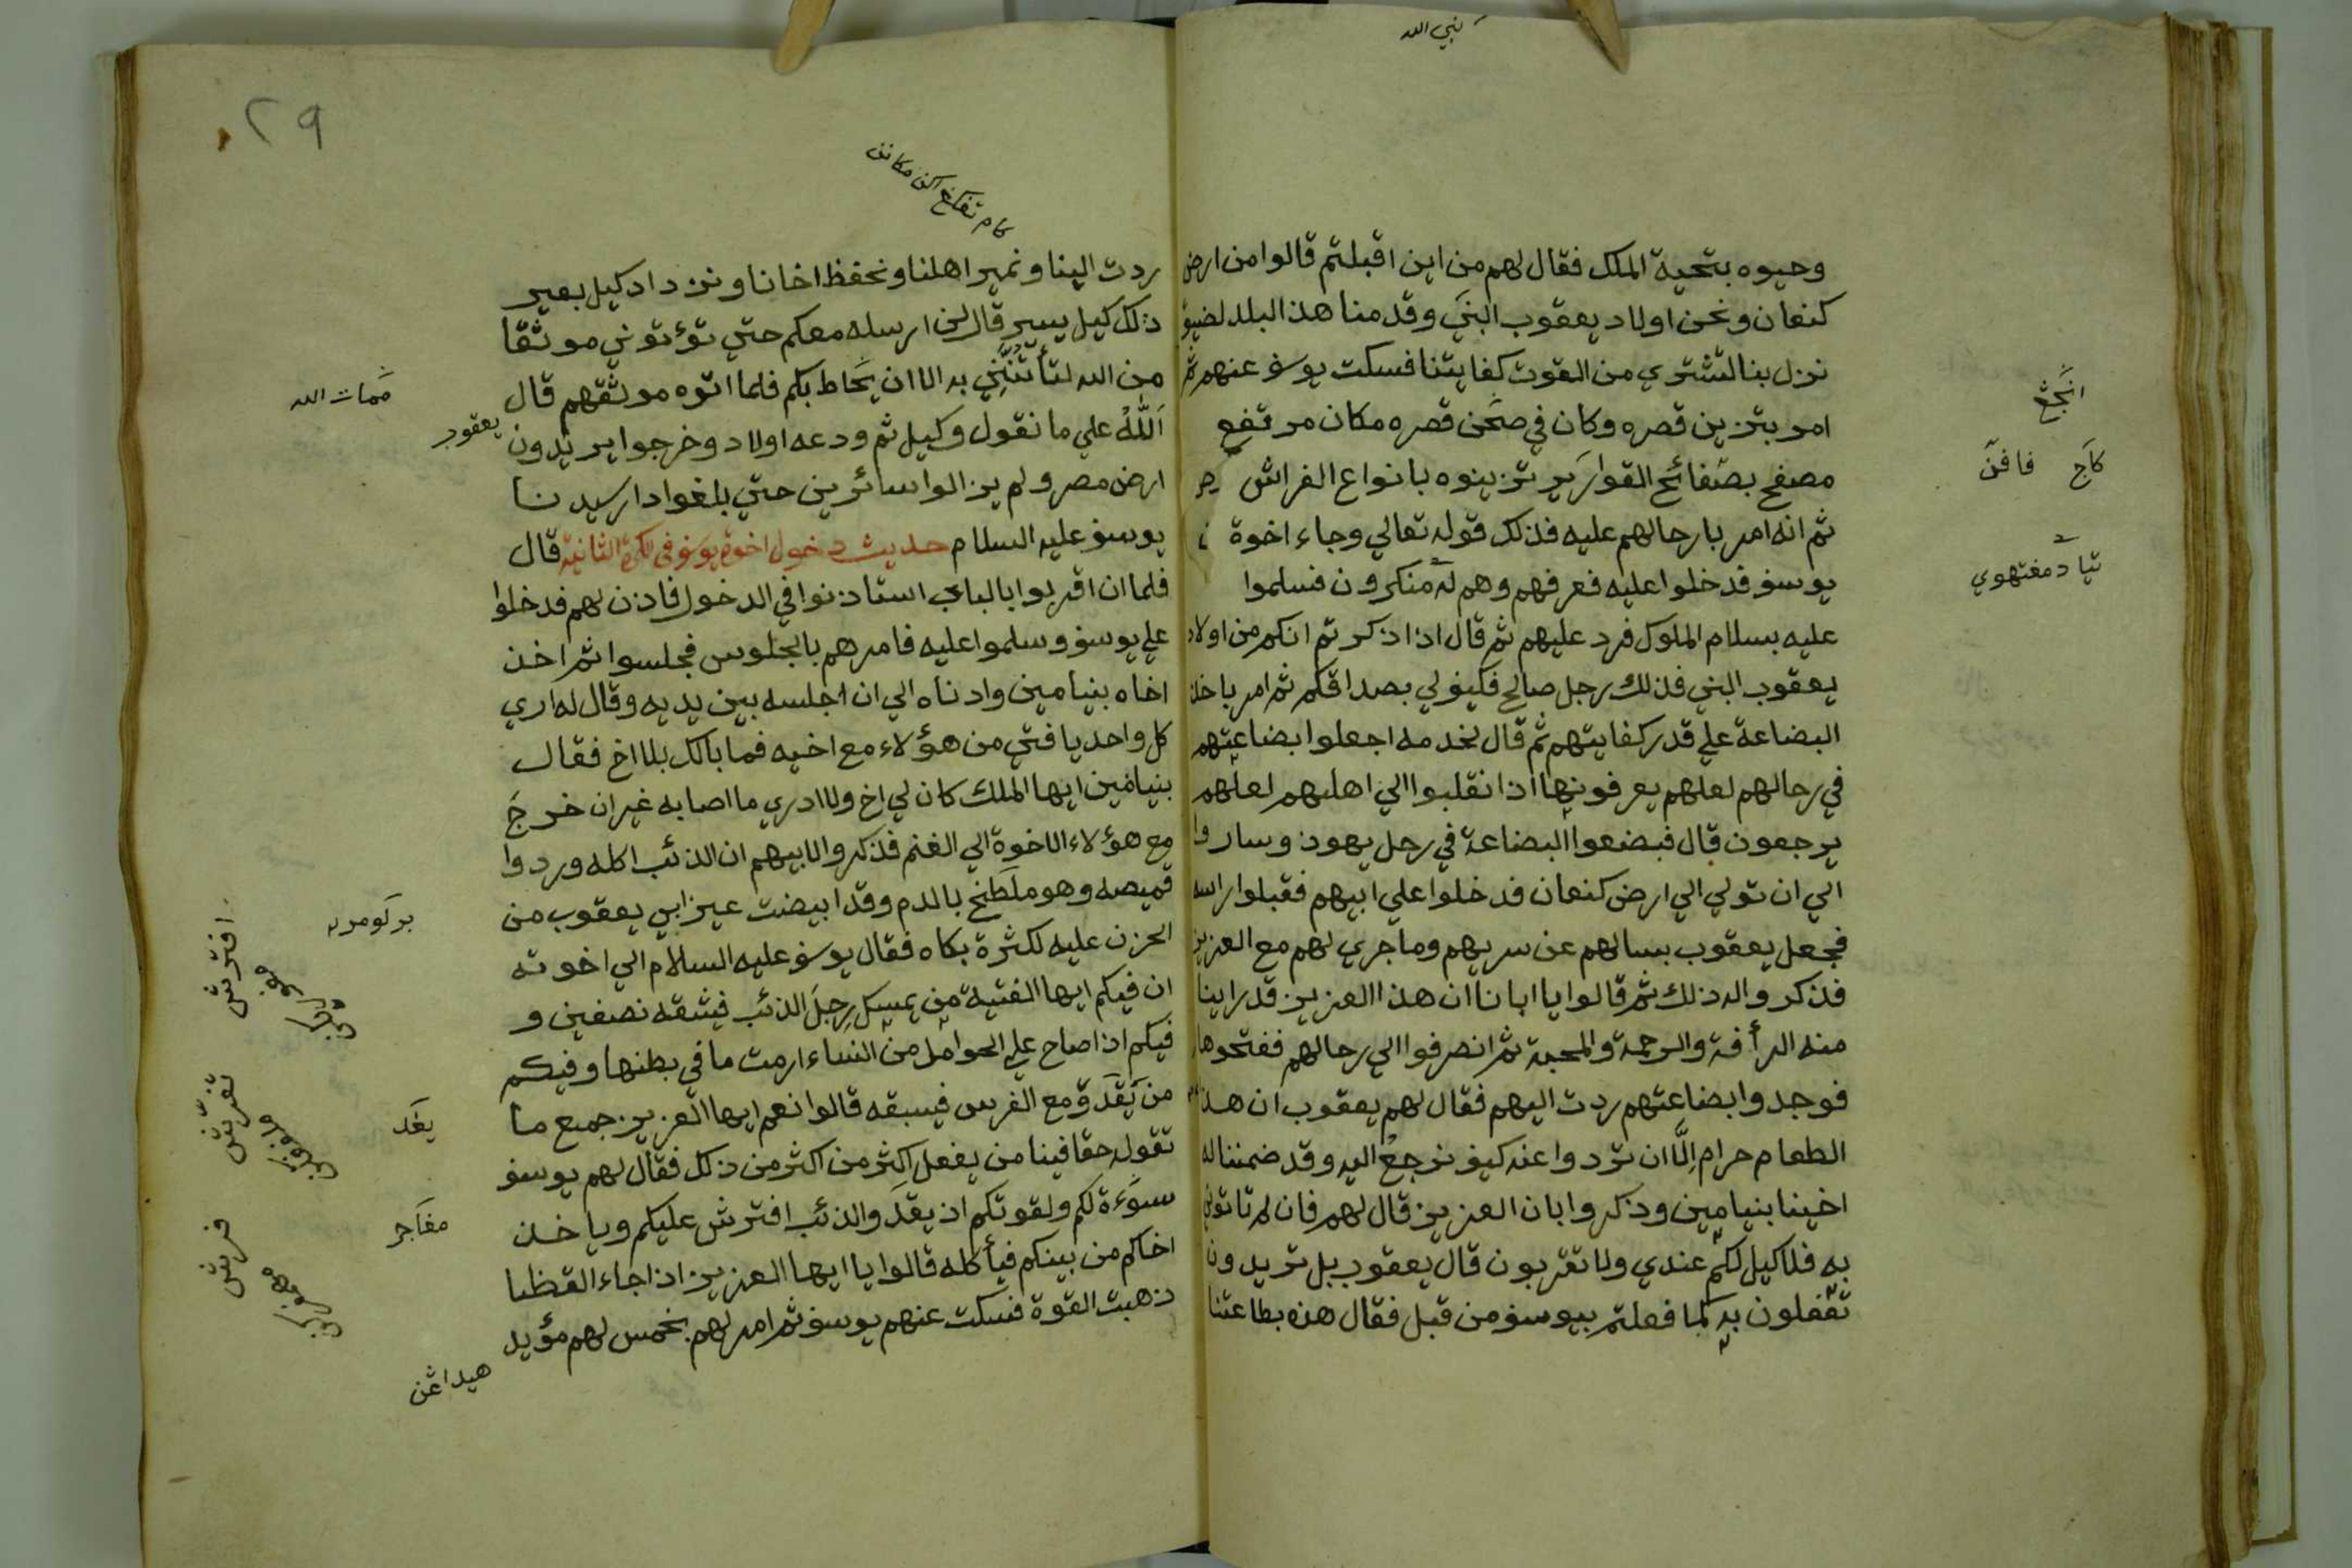 نبي الله
وحيوه بتحية الملك فقال لهم من اين اقبلتم قالوا من ارض
كنعان ونحن اولاد يعقوب النبي وقد منا هذ البلد لضيق
نزل بنا لنشتري من القوت كفايتنا فسكت يوسف عنهم ثم
امر بتزين قصره وكان في صحن قصره مكان مرتفع
مصفح بصفائح القوارير تزينوه بانواع الفراش
ثم انه امر بارحالهم عليه فذلك قوله تعالي وجاء اخوة
يوسف فدخلوا عليه فعرفهم وهم له منكرون فسلموا
عليه بسلام الملوك فرد عليهم ثم قال اذا ذكرتم انكم من اولاد
يعقوب النبي فذلك رجل صالح فكيف لي بصداقكم ثم امر باخذ
البضاعة علي قدر كفايتهم ثم قال لخدمه اجعلوا بضاعتهم
في رحالهم لعلهم يعرفونها اذا نقلبوا الي اهلهم لعلهم
يرجعون قال فبضعوا البضاعة في رحل يهوذ وساروا
الي ان تولي الي ارض كنعان فدخلوا علي ابيهم فقبلوا راسه
فجعل يعقوب يسالهم عن سريهم وما جري لهم مع العزيز
فذكروا له ذلك ثم قالوا يا ابانا ان هذا العزيز قد راينا
منه الرأفة والرحمة والمحبة ثم انصرفوا الي رحالهم ففتحوها
فوجدوا بضاعتهم ردت اليهم فقال لهم يعقوب ان هذ
الطعام حرام الّا ان تردوا عنه كيف نرجع اليه وقد ضمننا له
اخينا بنيامين وذكروا بان العزيز قال لهم فان لم تاتوني
به فلا كيل لكم عندي ولا تقربون قال يعقوب بل تريدون
تفعلون به كما فعلتم بيوسف من قبل فقال هذه بطاعتنا
انجڠ
كاچ فافن
تياد مغتهوي
٢٩
ردت الينا ونمير اهلنا ونحفظ اخانا ونزداد كيل بعير
ذلك كيل يسير قال لن ارسله معكم حتي تؤتوني موثقا
من الله لتأتنّني به الا ان يحاط بكم فلما اتوه موثقهم قال
اَللّٰهُ علي ما نقول وكيل ثم ودعه اولاد وخرجوا يريدون
يعقوب
ارض مصر ولم يزالوا سائرين حتي بلغوا دار سيدنا
يوسف عليه السلام حديث دخول اخوة يوسف في الكرة الثانية قال
فلما ان اقربوا بالباب استاذنوا في الدخول فاذن لهم فدخلوا
علي يوسف وسلموا عليه فامرهم بالجلوس فجلسوا ثم اخذ
اخاه بنيامين وادناه الي ان اجلسه بين يديه وقال له اري
كل واحد يا فتي من هؤلاء مع اخيه فما بالك بلا اخ فقال
بنيامين ايها الملك كان لي اخ ولا ادري ما اصابه غير ان خرج
مع هؤلاء الاخوة الي الغنم فذكروا لابيهم ان الذئب اكله وردوا
قميصه وهو ملطخ بالدم وقد ابيضت عيز ابي يعقوب من
الحزن عليه لكثرة بكاه فقال يوسف عليه السلام الي اخوته
ان فيكم ايها الفتية من يمسك رجل الذئب فيشقه نصفين و
فيكم اذا صاح علي الحوامل من النساء ارمت ما في بطنها وفيكم
من يَقَدَو مع الفرس فيسبقه قالوا نعم ايها العزيز جميع ما
تقوله حقا فينا من يفعل اكثر من اكثر من ذلك فقال لهم يوسف
سوءة لكم ولقوتكم اذ يقدَ والذئب افترش عليكم وياخذ
اخاكم من بينكم فيأكله قالوا يا ايها العزيز اذا جاء القظا
ذهبت القوة فسكت عنهم يوسف ثم امر لهم بخمس لهم مؤيد
بركومر
افترش
يغد
تفرش
مغاجر
فرش
هيداڠن